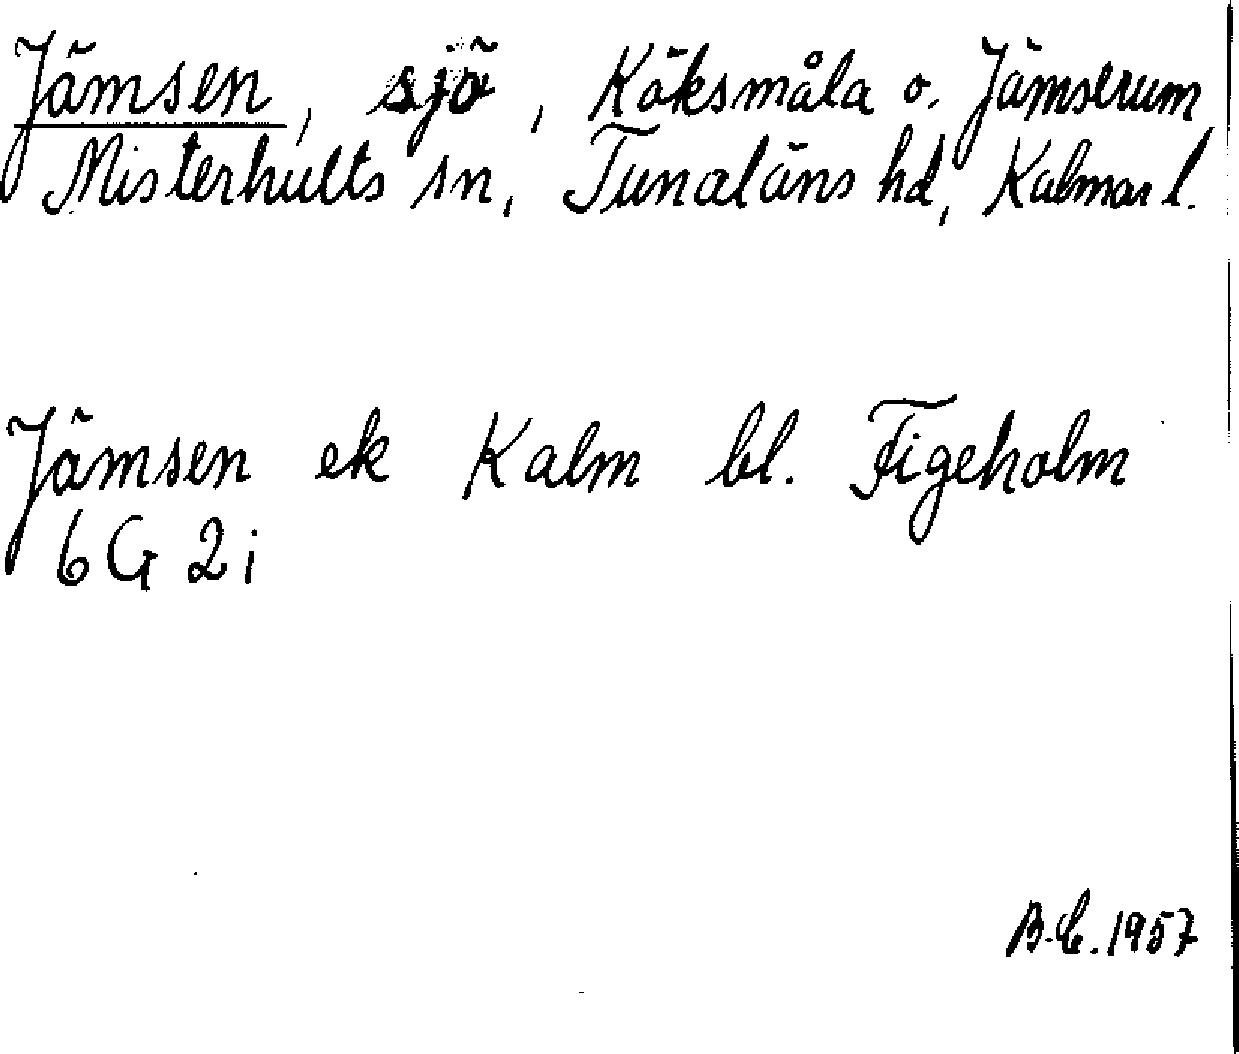 Jämsen, sjö, Köksmåla o. Jämserum
Misterhults sn, Tunaläns hd, Kalmar l.
Jämsen ek Kalm bl. Figeholm
6G 2i
B.C. 1957